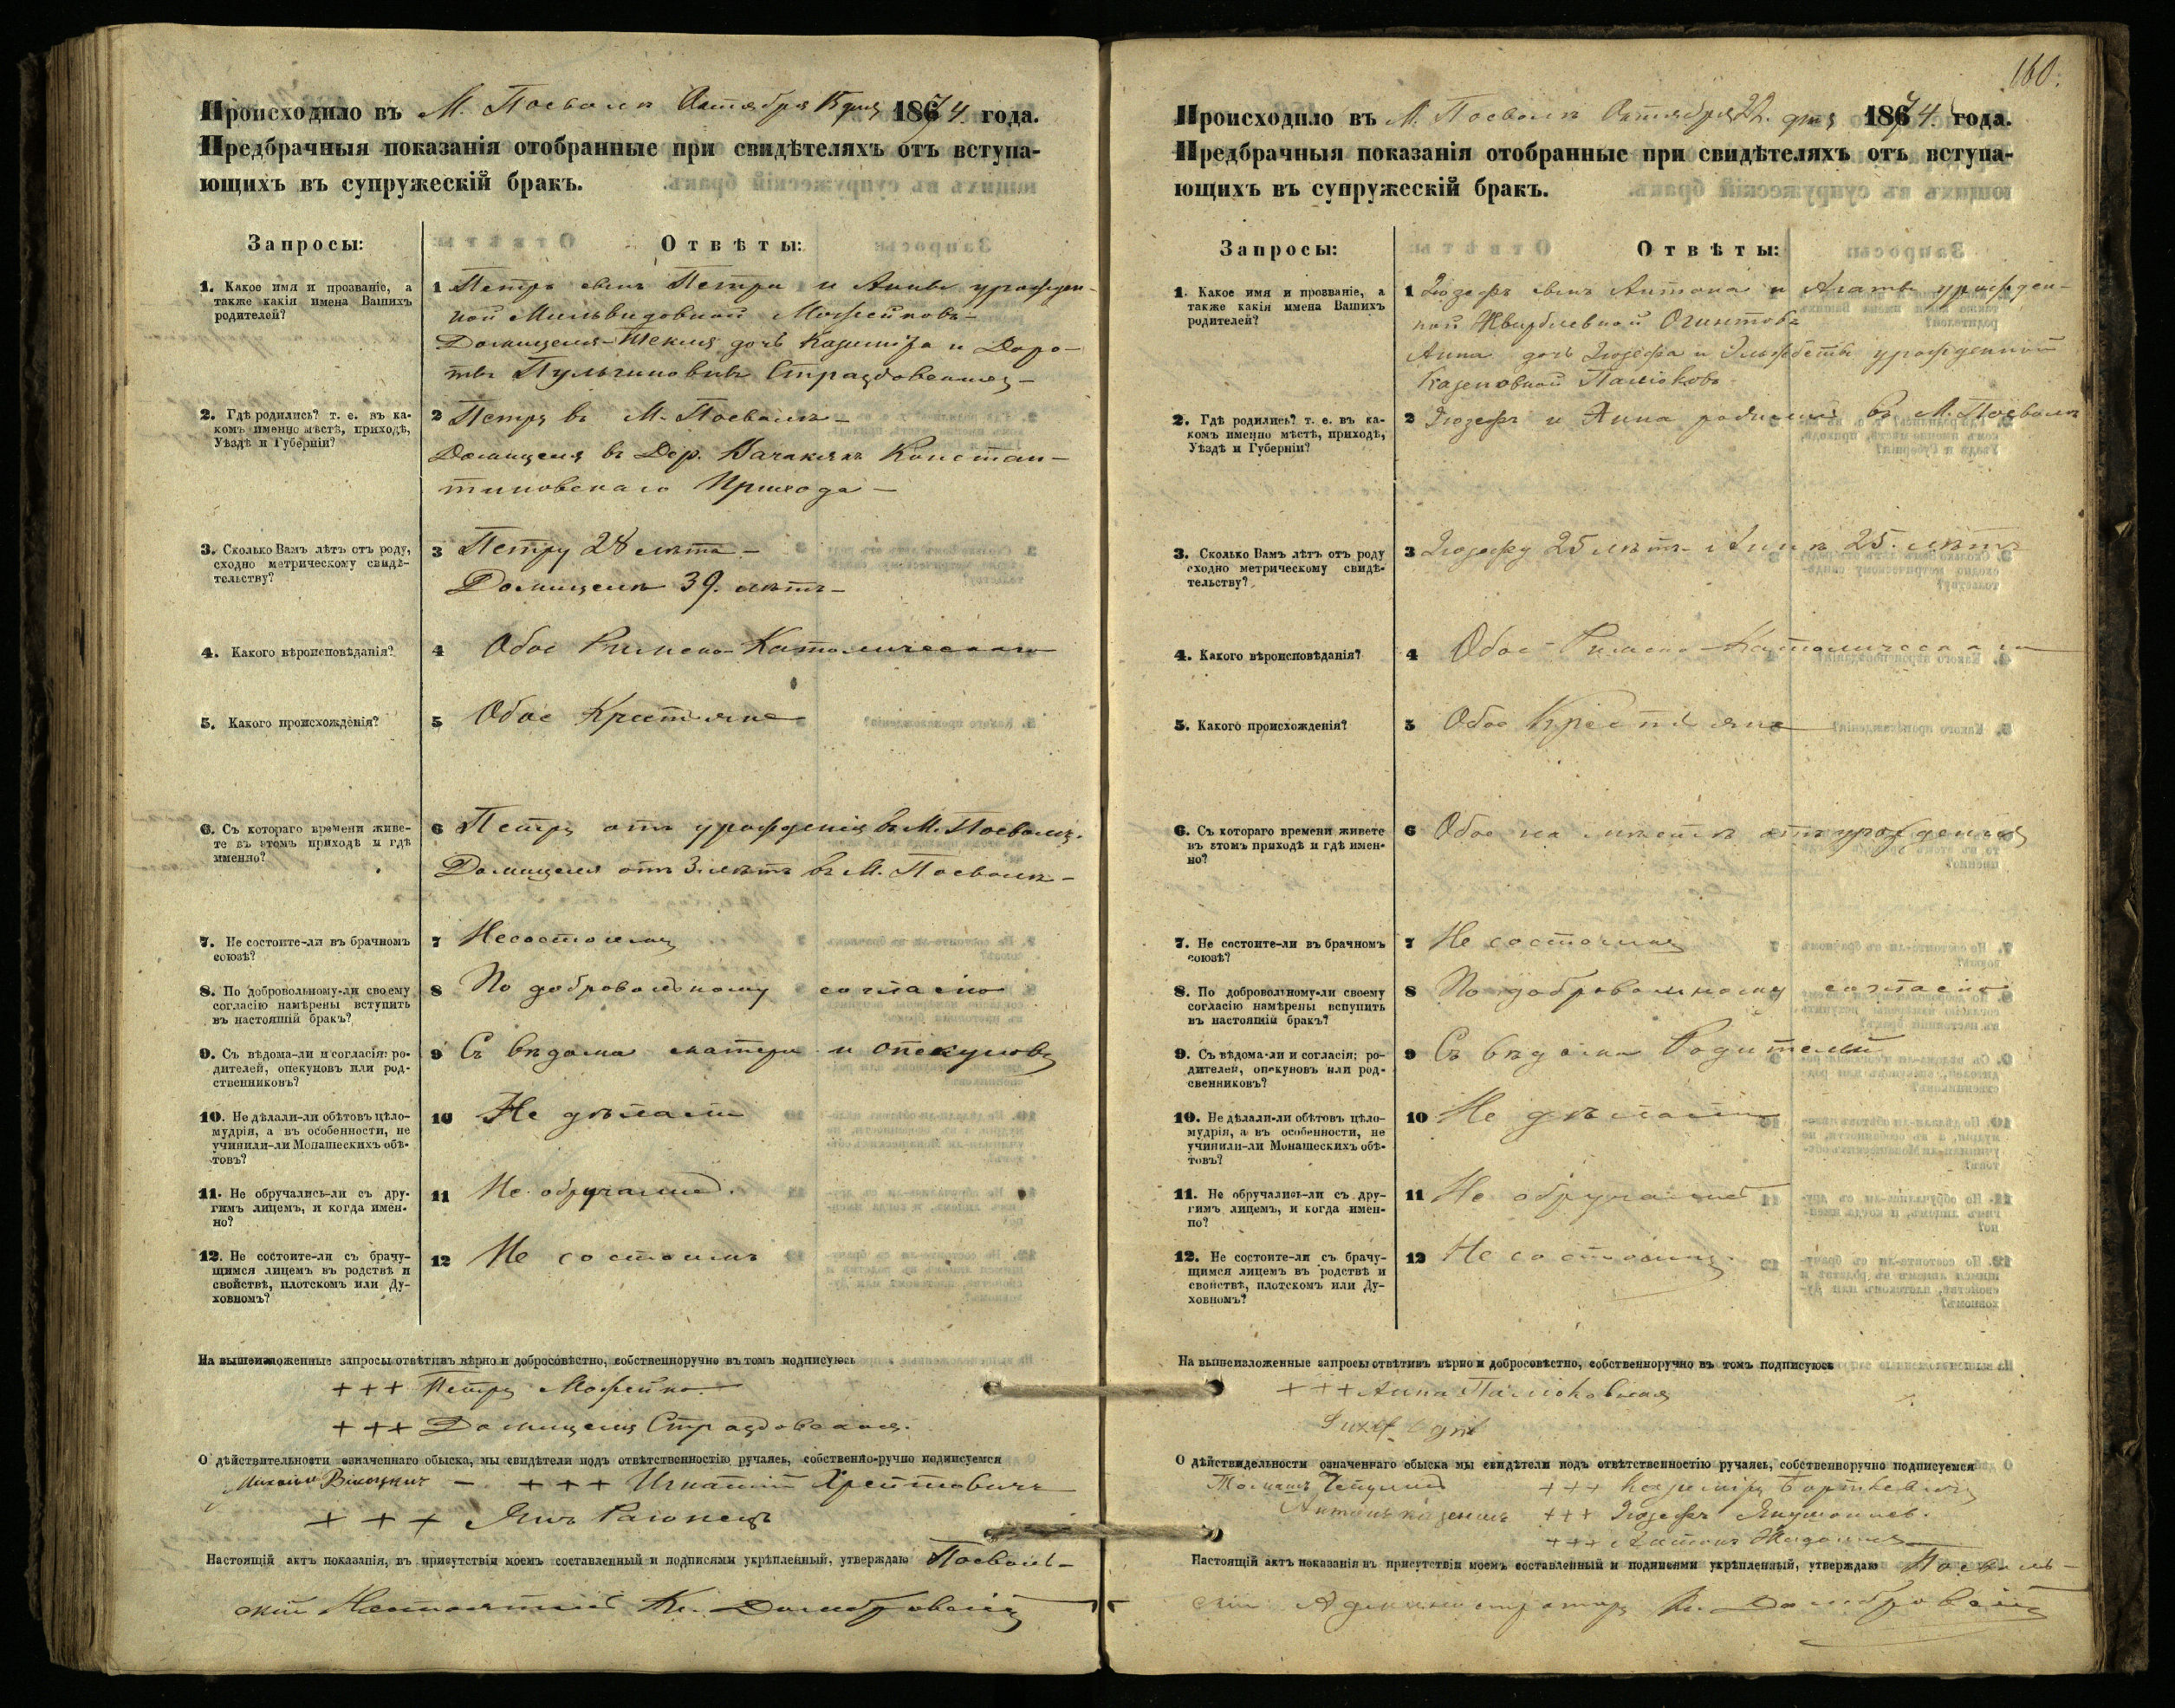 Происходило въ М. Посволѣ Октября 15 дня 1874. года.
Предбрачныя показанія отобранные при свидѣтеляхъ отъ вступа-
ющихъ въ супружескій бракъ.
Запросы: Отвѣты:
1. Какое имя и прозваніе, а
также какія имена Вашихъ
родителей?
1 Петръ сынъ Петра и Анны урожден-
ной Мильвидовной Можейковъ –
Домицеля-Текля дочь Казиміра и Доро-
ты Пульхиновны Страздовскихъ –
2. Гдѣ родились? т. е. въ ка-
комъ именно мѣстѣ, приходѣ,
Уѣздѣ и Губерніи?
2 Петръ въ М. Посволѣ –
Домицеля въ Дер. Констан-
тиновскаго Прихода –
3. Сколько Вамъ лѣтъ отъ роду,
сходно метрическому свидѣ-
тельству?
3 Петру 28 лѣтъ –
Домицели 39. лѣтъ –
4. Какого вѣроисповѣданія?
4 Обое Римско-Католическаго
5. Какого происхожденія?
5 Обое Крестьяне
6. Съ котораго времени живе-
те въ этомъ приходѣ и гдѣ
именно?
6 Петръ отъ урожденія въ М. Посволѣ.
Домицеля отъ 3. лѣтъ въ М. Посволѣ –
7. Не состоите-ли въ брачномъ
союзѣ?
7 Несостоимъ
8. По добровольному-ли своему
согласію намѣрены вступить
въ настояшій бракъ?
8 По добровольному согласію
9. Съ вѣдома-ли и согласія: ро-
дителей, опекуновъ или род-
ственниковъ?
9 Съ вѣдома матери и опекуновъ
10. Не дѣлали-ли обѣтовъ цѣло-
мудрія, а въ особенности, не
учинили-ли Монашескихъ обѣ-
товъ?
10 Не дѣлали
11. Не обручались-ли съ дру-
гимъ лицемъ, и когда имен-
но?
11 Не обручались.
12. Не состоите-ли съ брачу-
щимся лицемъ въ родствѣ и
свойствѣ, плотскомъ или Ду-
ховномъ?
12 Не состоимъ
На вышеизложенные запросы отвѣтивъ вѣрно и добросовѣстно, собственноручно въ томъ подписуюсь
+++ Петръ Можейко. –
+++ Домицеля Страздовская.
О дѣйствительности означеннаго обыска, мы свидѣтели подъ отвѣтственностію ручаясь, собственно-ручно подписуемся
Михаилъ – +++ Игнатій Хрептовичъ
+++ Янъ
Настоящій актъ показанія, въ присутствіи моемъ составленный и подписями укрѣпленный, утверждаю Посволь-
скій Настоятель Кс. Домбровскій
160.
Происходило въ М. Посволѣ Октября 22. дня 1874. года.
Предбрачныя показанія отобранные при свидѣтеляхъ отъ вступа-
ющихъ въ супружескій бракъ.
Запросы: Отвѣты:
1. Какое имя и прозваніе, а
также какія имена Вашихъ
родителей?
1 Іозефъ сынъ Антона и Агаты урожден-
ной Жвирблевной Огинтовъ
Анна дочь Іозефа и Эльжбеты урожденной
Казеновной Палюковъ
2. Гдѣ родились? т. е. въ ка-
комъ именно мѣстѣ, приходѣ,
Уѣздѣ и Губерніи?
2 Іозефъ и Анна родились въ М. Посволѣ
3. Сколько Вамъ лѣтъ отъ роду
сходно метрическому свидѣ-
тельству?
3 Іозефу 25 лѣтъ Аннѣ 25. лѣтъ
4. Какого вѣроисповѣданія?
4 Обое Римско-Католическаго
5. Какого происхожденія?
5 Обое Крестьяне
6. Съ котораго времени живете
въ этомъ приходѣ и гдѣ имен-
но?
6 Обое на мѣстѣ отъ урожденія
7. Не состоите-ли въ брачномъ
союзѣ?
7 Не состоимъ
8. По добровольному-ли своему
согласію намѣрены вспупить
въ настояшій бракъ?
8 По добровольному согласію
9. Съ вѣдома-ли и согласія; ро-
дителей, опекуновъ или род-
свенниковъ?
9 Съ вѣдома Родителей
10. Не дѣлали-ли обѣтовъ цѣло-
мудрія, а въ особенности, не
учинили-ли Монашескихъ обѣ-
товъ?
10 Не дѣлали
11. Не обручались-ли съ дру-
гимъ лицемъ, и когда имен-
но?
11 Не обручались
12. Не состоите-ли съ брачу-
щимся лицемъ въ родствѣ и
свойствѣ, плотскомъ или Ду-
ховномъ?
12 Не состоимъ.
На вышеизложенные запросы отвѣтивъ вѣрно и добросовѣстно, собственноручно въ томъ подписуюсь
+++ Анна Палюковная
О дѣйствидельности означеннаго обыска мы свидѣтели подъ отвѣтственностію ручаясь, собственноручно подписуемся
+++ Казиміръ Борткевичъ
Антонъ +++ Іозефъ
+++ Антонъ
Настоящій актъ показанія въ присутствіи моемъ составленный и подписями укрѣпленный, утверждаю Посволь-
скій Администраторъ Кс. Домбровскій